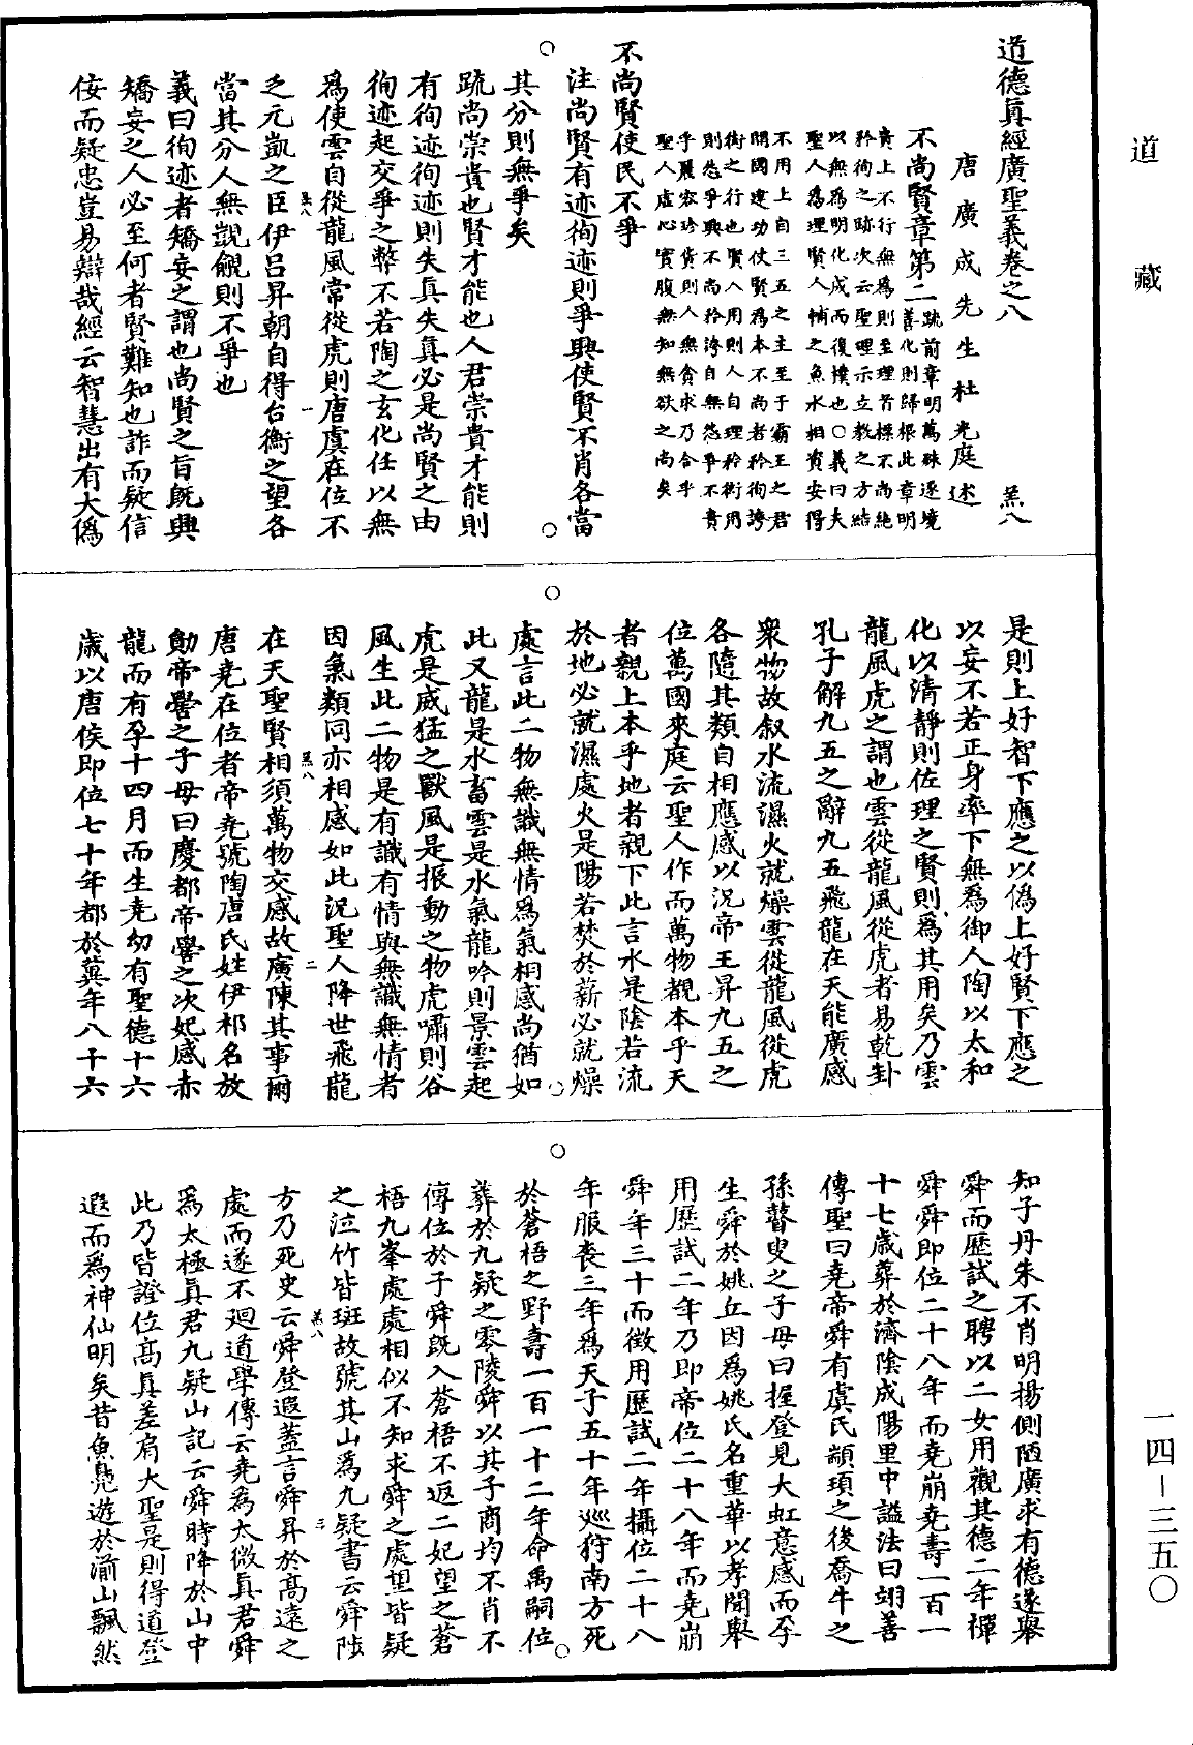 道藏
道德真經廣聖義卷之八 羔八
唐廣成先生杜光庭述
不尚賢章第二
疏前章明萬殊逐境
善化則歸根此章明
貴上不行無為則至理者標不尚絕
矜徇之跡次云聖理示立教之方結
以無為明化成而復樸也○義曰夫
聖人為理賢人輔之魚水相資安得
不用上自三五之主至于霸王之君
開國建功仗賢為本不尚者矜徇誇
衒之行也賢人用則人自理矜衒用
則忿爭興不尚矜誇自無忿爭不貴
乎麗容珍貨則人無貪求乃合乎
聖人虛心實腹無知無欲之尚矣
不尚賢使民不爭
注尚賢有迹徇迹則爭興使賢不肖各當
其分則無爭矣
疏尚崇貴也賢才能也人君崇貴才能則
有徇迹徇迹則失真失真必是尚賢之由
徇迹起交爭之弊不若陶之玄化任以無
為使雲自從龍風常從虎則唐虞在位不
羔八 一
乏元凱之臣伊呂昇朝自得台衡之望各
當其分人無覬覦則不爭也
義曰徇迹者矯妄之謂也尚賢之旨既興
矯妄之人必至何者賢難知也詐而疑信
佞而疑忠豈易辯哉經云智慧出有大偽
是則上好智下應之以偽上好賢下應之
以妄不若正身率下無為御人陶以太和
化以清靜則佐理之賢則為其用矣乃雲
龍風虎之謂也雲從龍風從虎者易乾卦
孔子解九五之辭九五飛龍在天能廣感
眾物故叙水流濕火就燥雲從龍風從虎
各隨其類自相應感以況帝王昇九五之
位萬國來庭云聖人作而萬物覩本乎天
者親上本乎地者親下此言水是陰若流
於地必就濕處火是陽若焚於薪必就燥
處言此二物無識無情為氣相感尚猶如
此又龍是水畜雲是水氣龍吟則景雲起
虎是威猛之獸風是振動之物虎嘯則谷
風生此二物是有識有情與無識無情者
因氣類同亦相感如此況聖人降世飛龍
羔八 二
在天聖賢相須萬物交感故廣陳其事爾
唐堯在位者帝堯號陶唐氏姓伊祁名放
勛帝嚳之子母曰慶都帝嚳之次妃感赤
龍而有孕十四月而生堯幼有聖德十六
歲以唐侯即位七十年都於冀年八十六
知子丹朱不肖明揚側陋廣求有德遂舉
舜而歷試之聘以二女用觀其德二年禪
舜舜即位二十八年而堯崩堯壽一百一
十七歲葬於濟陰成陽里中謚法曰翊善
傳聖曰堯帝舜有虞氏顓頊之後喬牛之
孫瞽叟之子母曰握登見大虹意感而孕
生舜於姚丘因為姚氏名重華以孝聞舉
用歷試二年乃即帝位二十八年而堯崩
舜年三十而徵用歷試二年攝位二十八
年服喪三年為天子五十年巡狩南方死
於蒼梧之野壽一百一十二年命禹嗣位
葬於九疑之零陵舜以其子商均不肖不
傳位於子舜既入蒼梧不返二妃望之蒼
梧九峯處處相似不知求舜之處望皆疑
之泣竹皆斑故號其山為九疑書云舜陟
羔八 三
方乃死史云舜登遐蓋言舜昇於高遠之
處而遂不廻道學傳云堯為太微真君舜
為太極真君九疑山記云舜時降於山中
此乃皆證位高真差肩大聖是則得道登
遐而為神仙明矣昔魚鳧遊於湔山飄然
一四-三五〇